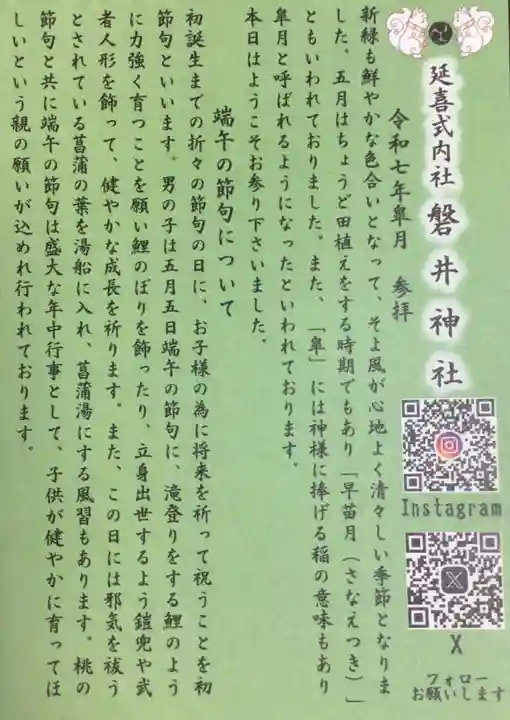 延喜式内社 磐井神社
令和七年皐月 参拝
新緑も鮮やかな色合いとなって、そよ風が心地よく清々しい季節となりま
した。五月はちょうど田植えをする時期でもあり「早苗月(さなえつき)」
ともいわれておりました。また、「皐」には神様に捧げる稲の意味もあり
皐月と呼ばれるようになったといわれております。
本日はようこそお参り下さいました。
端午の節句について
初誕生までの折々の節句の日に、お子様の為に将来を祈って祝うことを初
節句といいます。男の子は五月五日端午の節句に、滝登りをする鯉のよう
に力強く育つことを願い鯉のぼりを飾ったり、立身出世するよう鎧兜や武
者人形を飾って、健やかな成長を祈ります。また、この日には邪気を祓う
とされている菖蒲の葉を湯船に入れ、菖蒲湯にする風習もあります。桃の
節句と共に端午の節句は盛大な年中行事として、子供が健やかに育ってほ
しいという親の願いが込めれ行われております。
Instagram
X
フォロー
お願いします